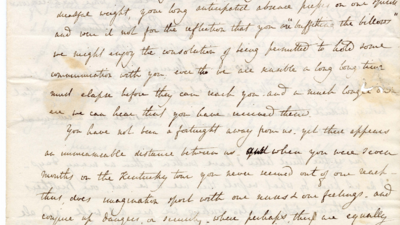 weight, your long anticipated absence presses on our spirits
and were it not for the reflection that you are "buffeting the billows"
we might enjoy the consolation of being permitted to hold some
communication with you even tho' we are sensible a long long time
must elapse before they can reach you and a much longer one
ere we can hear that you have received them.
You have not been a fortnight away from us, yet there appears
an immeasurable distance between us. when you were seven
months on the Kentucky tour you never seemed out of one reach
thus does imagination sport with one nerves & one feelings, and
conjure up dangers, or security, where perhaps they are equally